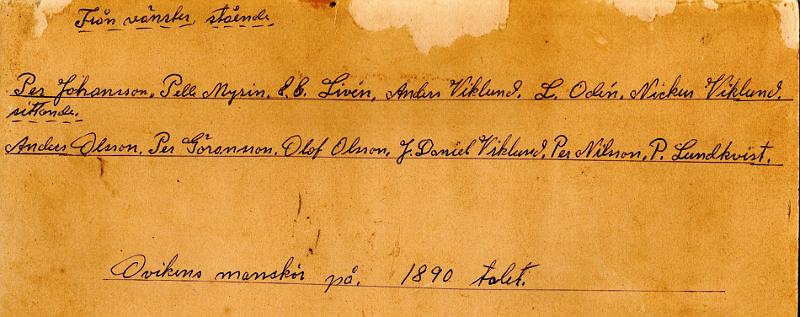 Från vänster, stående
Per Johansson, Pelle Myrin, E. E. Livén, Anders Viklund. L. Odén, Nickus Viklund.
sittande.
Anders Olsson. Per Göransson. Olof Olsson, J. Daniel Viklund, Per Nilsson, P. Lundkvist.
Ovikens manskör på. 1890 talet.